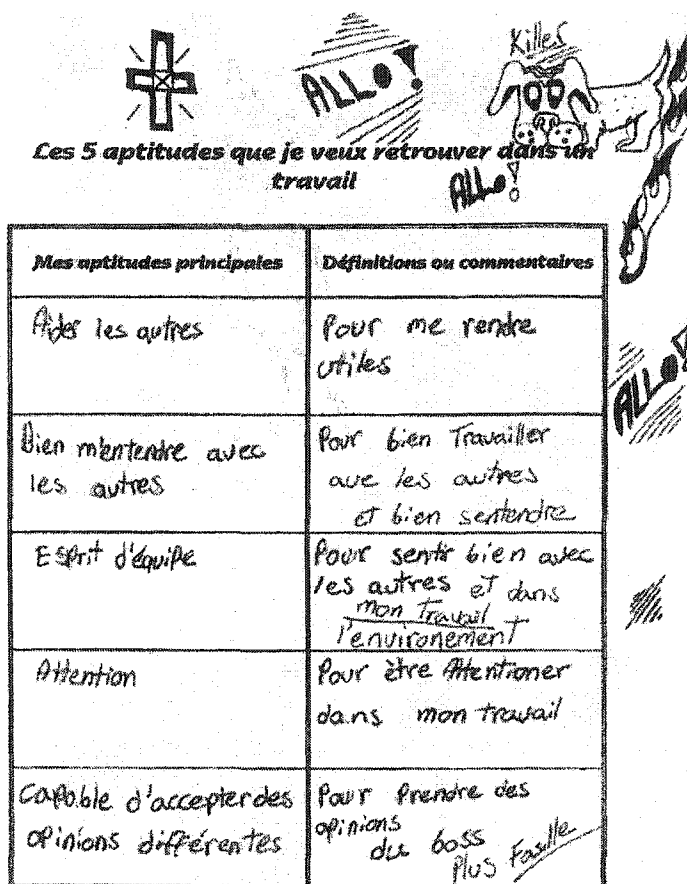 Killes
ALLO!
Les 5 aptitudes que je veux retrouver dans un
travail
ALLO!
Mes aptitudes principales
Définitions ou commentaires
Aider les autres
Pour me rendre
utiles
ALLO!
Bien m'entendre avec
les autres
Pour bien Travailler
ave les autres
et bien sentendre
Esprit d'équipe
Pour sentir bien avec
les autres et dans
mon Travail
l'environement
Attention
Pour être Attentioner
dans mon travail
Capable d'accepter des
opinions différentes
Pour Prendre des
opinions
du boss
Plus Fasille